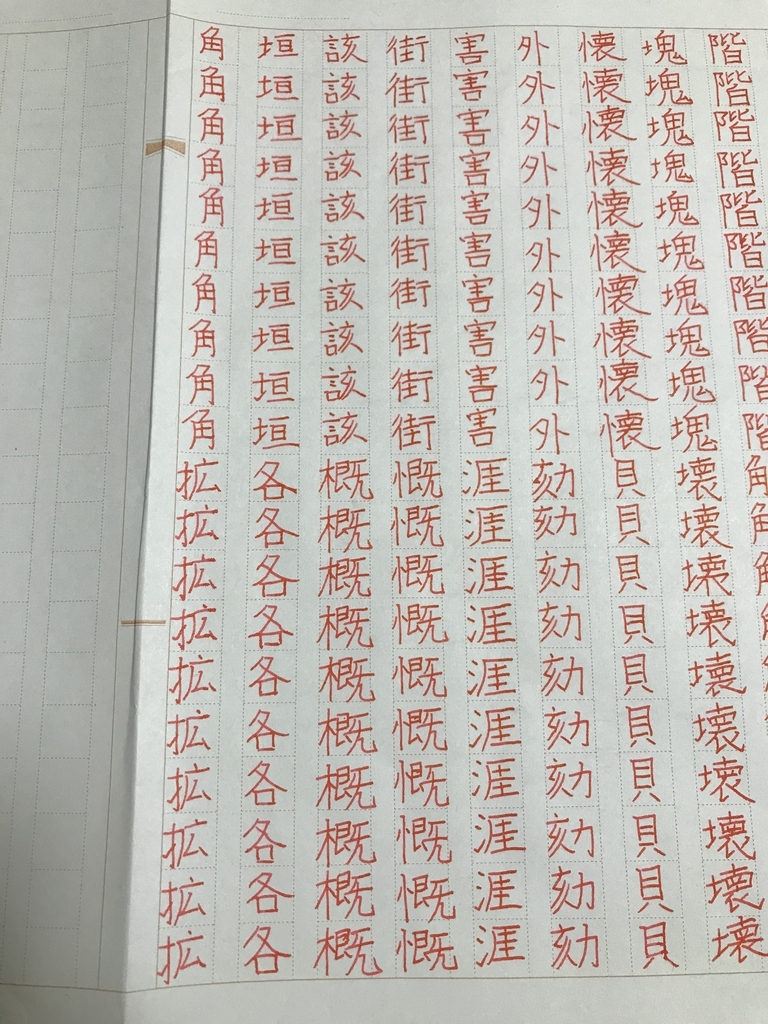 階階階階階階階階階階
塊塊塊塊塊塊塊塊塊塊壊壊壊壊壊壊壊壊壊壊
懐懐懐懐懐懐懐懐懐懐貝貝貝貝貝貝貝貝貝貝
外外外外外外外外外外劾劾劾劾劾劾劾劾劾劾
害害害害害害害害害害涯涯涯涯涯涯涯涯涯涯
街街街街街街街街街街慨慨慨慨慨慨慨慨慨慨
該該該該該該該該該該概概概概概概概概概概
垣垣垣垣垣垣垣垣垣垣各各各各各各各各各各
角角角角角角角角角角拡拡拡拡拡拡拡拡拡拡